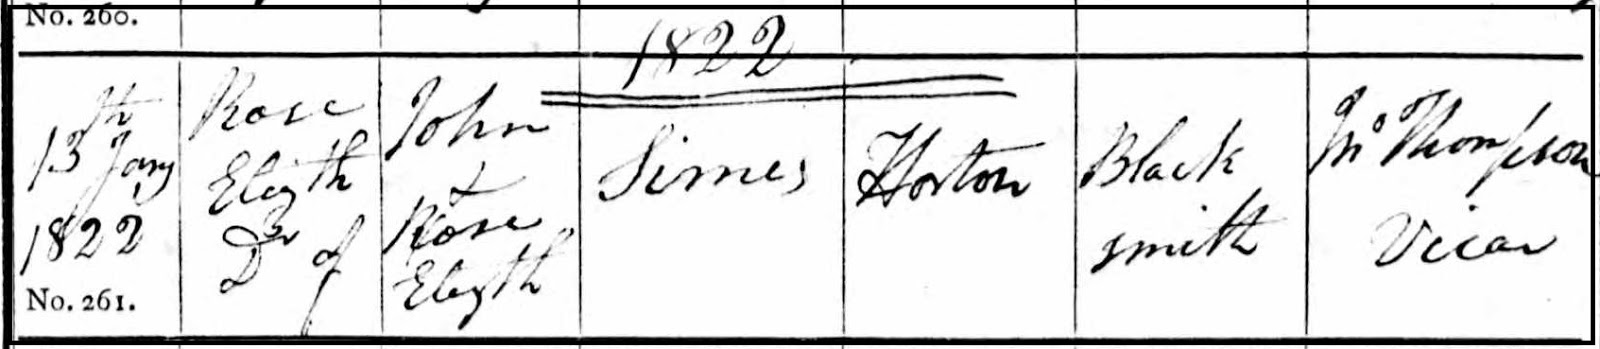 No. 260.
1822
13th Jany
1822
No. 261.
Rose
Elizth
Dr of
John
&
Rose
Elizth
Simes
Horton
Black
smith
Jno Thompson
Vicar